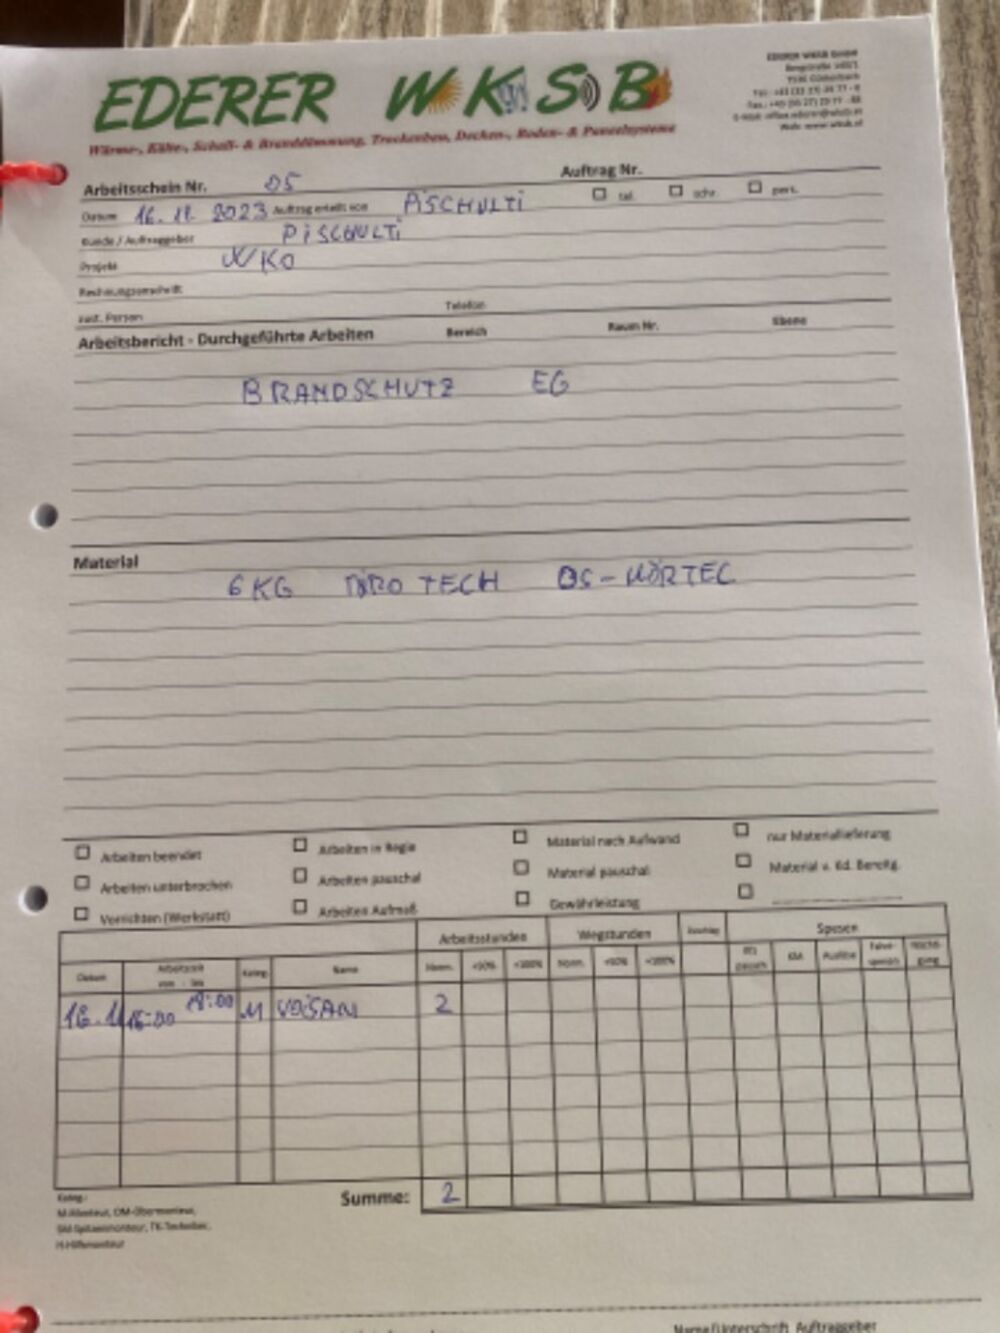 EDERER WKSB
Wärme-, Kälte-, Schall- & Branddämmung, Trockenbau, Decken-, Boden- & Paneelsysteme
EDERER WKSB GmbH
Arbeitsschein Nr. 05 Auftrag Nr.
Datum 16.11.2023 Auftrag erteilt von PISCHULTI tel. schr. pers.
Kunde / Auftraggeber PISCHULTI
Projekt WKO
Rechnungsanschrift
zust. Person Telefon
Arbeitsbericht - Durchgeführte Arbeiten Bereich Raum Nr. Ebene
BRANDSCHUTZ EG
Material
6 KG TECH
Arbeiten beendet Arbeiten in Regie Material nach Aufwand nur Materiallieferung
Arbeiten unterbrochen Arbeiten pauschal Material pauschal Material v. Kd. Bereitg.
Vorrichten (Werkstatt) Arbeiten Aufmaß Gewährleistung
Arbeitsstunden Wegstunden Spesen
Datum Arbeitszeit von - bis Kateg. Name Norm. +50% +100% Norm. +50% +100% KM Auslöse
16.11 16:00 18:00 M VOJSAN 2
Summe: 2
Kateg.:
M-Monteur, OM-Obermonteur,
SM-Spitzenmonteur, TK-Techniker,
H-Hilfsmonteur
Name/Unterschrift Auftraggeber